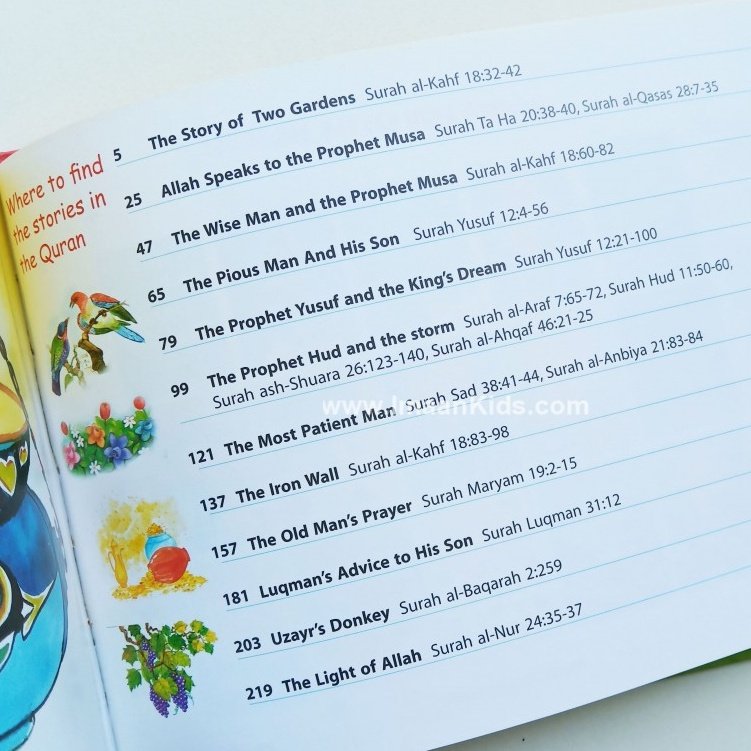 Where to find
the stories in
the Quran
5 The Story of Two Gardens Surah al-Kahf 18:32-42
25 Allah Speaks to the Prophet Musa Surah Ta Ha 20:38-40, Surah al-Qasas 28:7-35
47 The Wise Man and the Prophet Musa Surah al-Kahf 18:60-82
65 The Pious Man And His Son Surah Yusuf 12:4-56
79 The Prophet Yusuf and the King's Dream Surah Yusuf 12:21-100
99 The Prophet Hud and the storm Surah al-Araf 7:65-72, Surah Hud 11:50-60,
Surah ash-Shuara 26:123-140, Surah al-Ahqaf 46:21-25
121 The Most Patient Man Surah Sad 38:41-44, Surah al-Anbiya 21:83-84
137 The Iron Wall Surah al-Kahf 18:83-98
157 The Old Man's Prayer Surah Maryam 19:2-15
181 Luqman's Advice to His Son Surah Luqman 31:12
203 Uzayr's Donkey Surah al-Baqarah 2:259
219 The Light of Allah Surah al-Nur 24:35-37